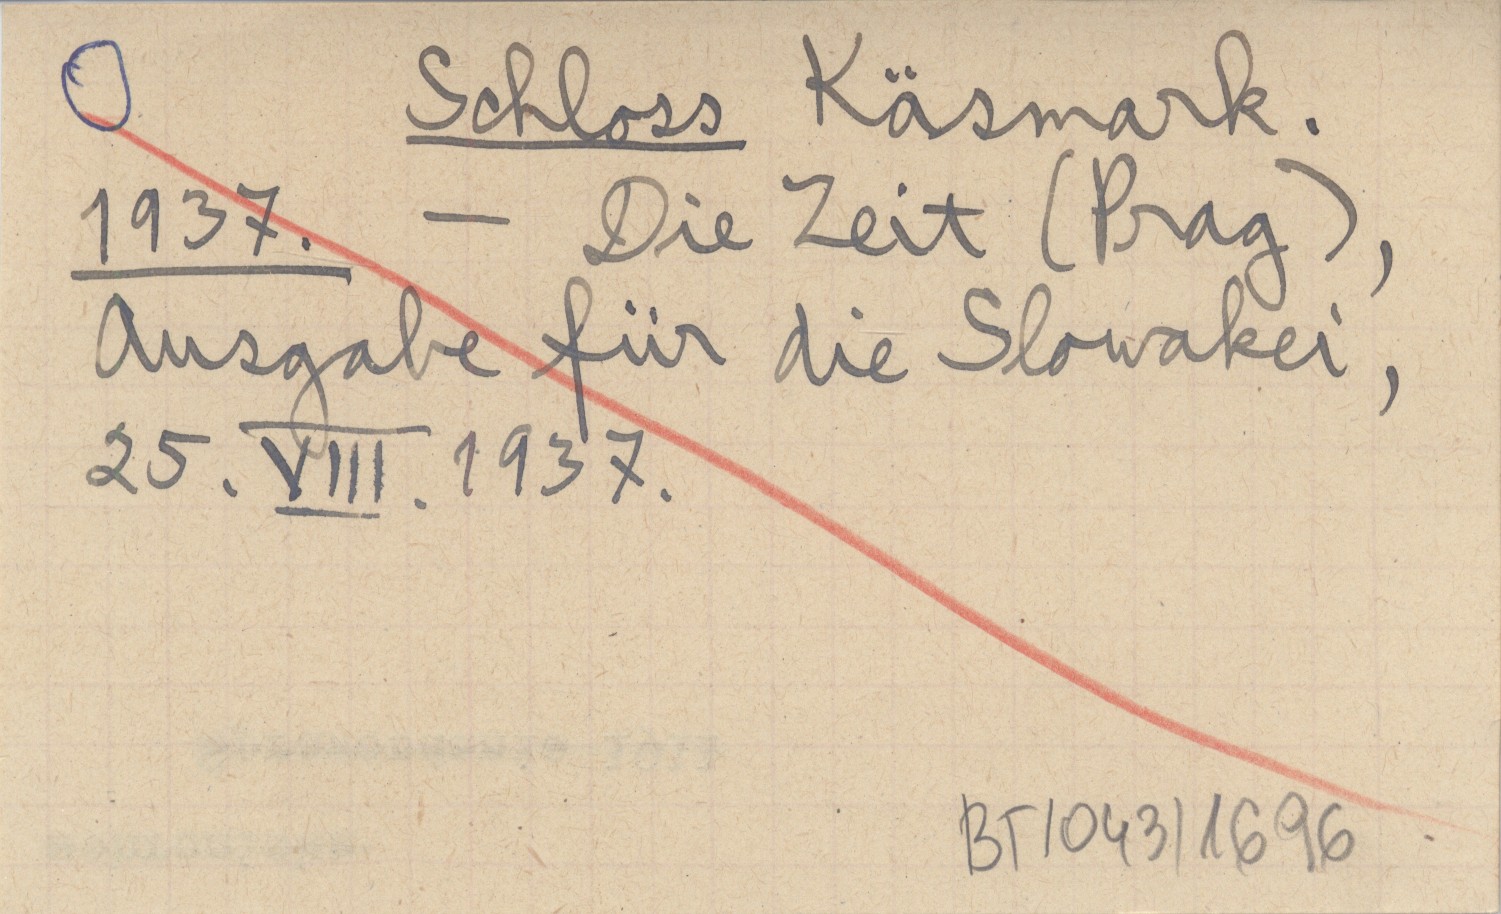 Schloss Käsmark.
1937. — Die Zeit (Prag),
Ausgabe für die Slowakei,
25. VIII. 1937.
BT/043/1696